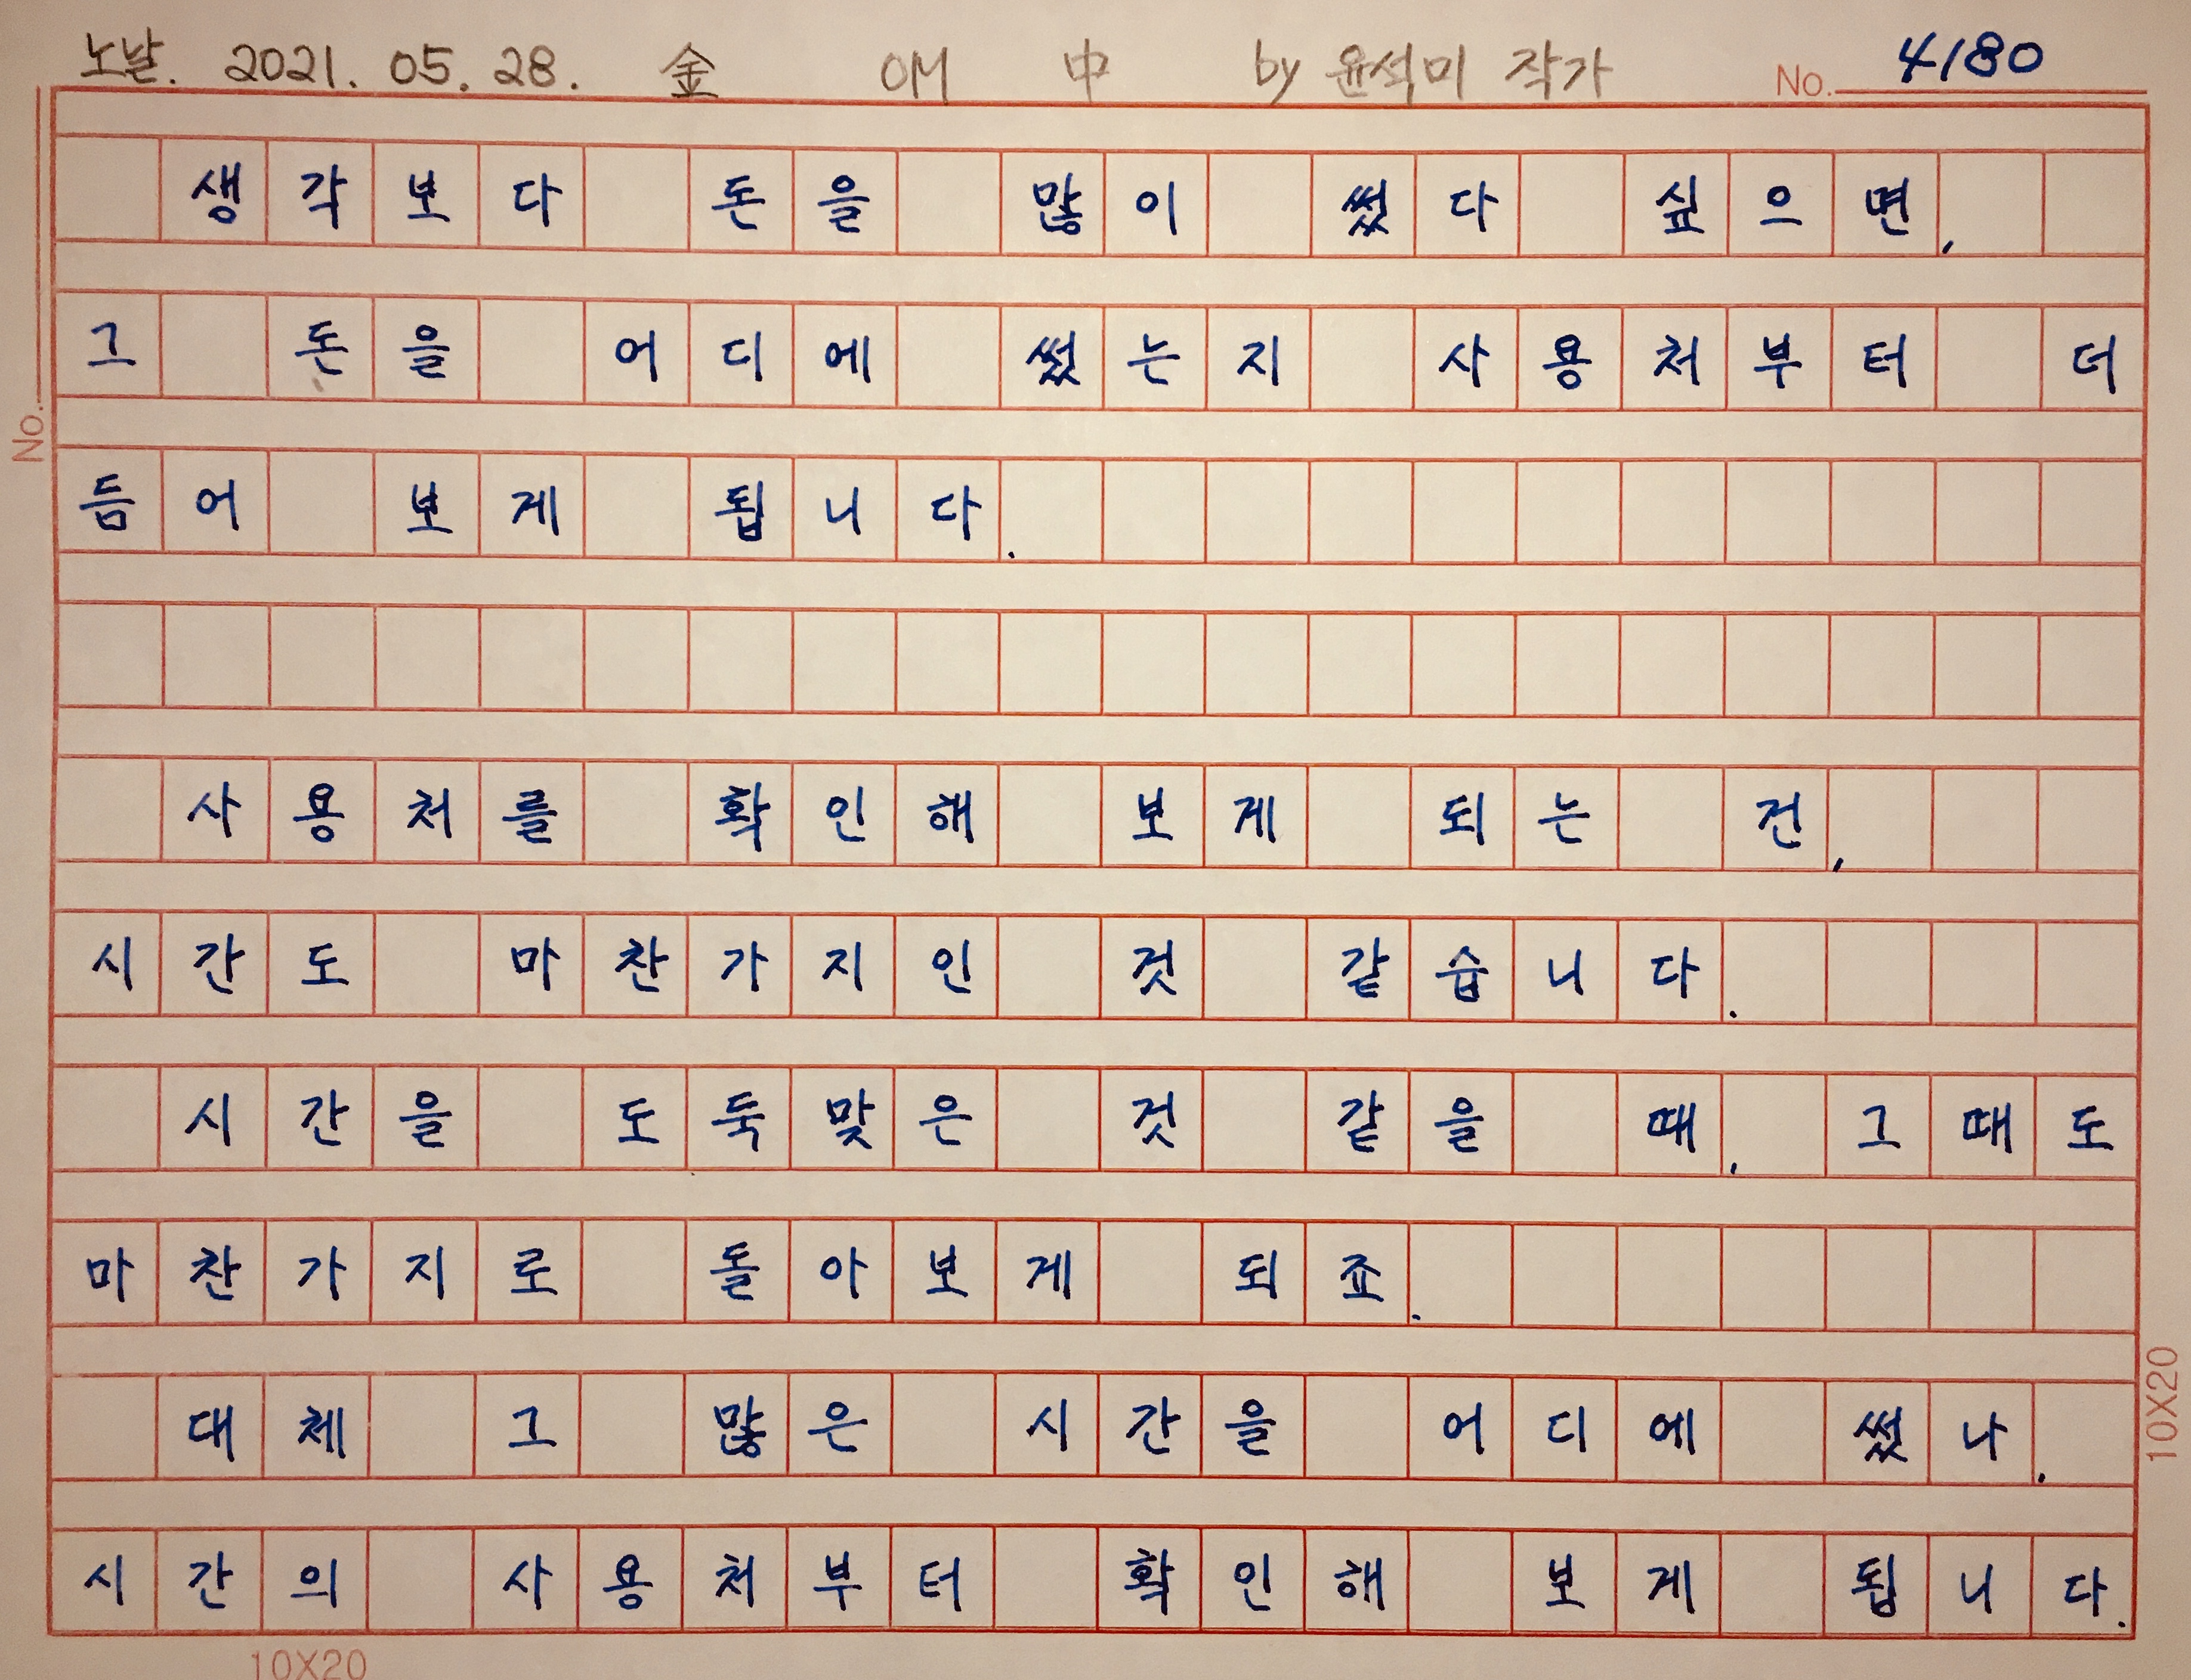 노날. 2021. 05. 28. 金 OM 中 by 윤석미 작가 No. 4180
생각보다 돈을 많이 썼다 싶으면,
그 돈을 어디에 썼는지 사용처부터 더
듬어 보게 됩니다.
사용처를 확인해 보게 되는 건,
시간도 마찬가지인 것 같습니다.
시간을 도둑맞은 것 같을 때, 그때도
마찬가지로 돌아보게 되죠.
대체 그 많은 시간을 어디에 썼나,
시간의 사용처부터 확인해 보게 됩니다.
No.
10X20
10X20